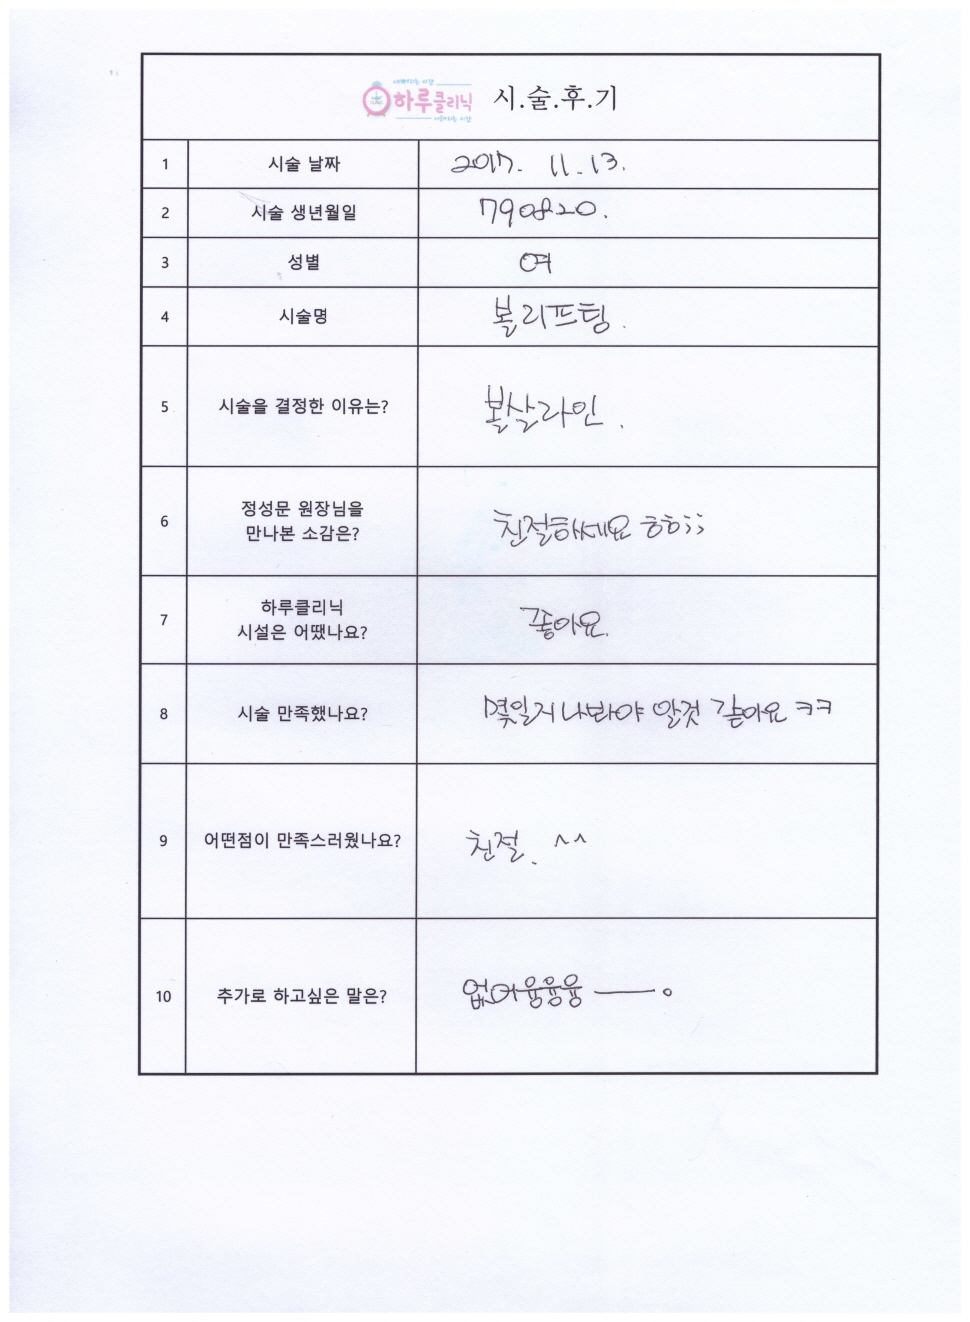 하루클리닉 시.술.후.기
1 시술 날짜 2017. 11. 13.
2 시술 생년월일 790820.
3 성별 여
4 시술명 볼리프팅.
5 시술을 결정한 이유는? 볼살라인.
6 정성문 원장님을
만나본 소감은? 친절하세요 ㅎㅎ;;
7 하루클리닉
시설은 어땠나요? 좋아요.
8 시술 만족했나요? 몇일지나봐야 알것 같아요 ㅋㅋ
9 어떤점이 만족스러웠나요? 친절. ^^
10 추가로 하고싶은 말은? 없어융융융 ——。